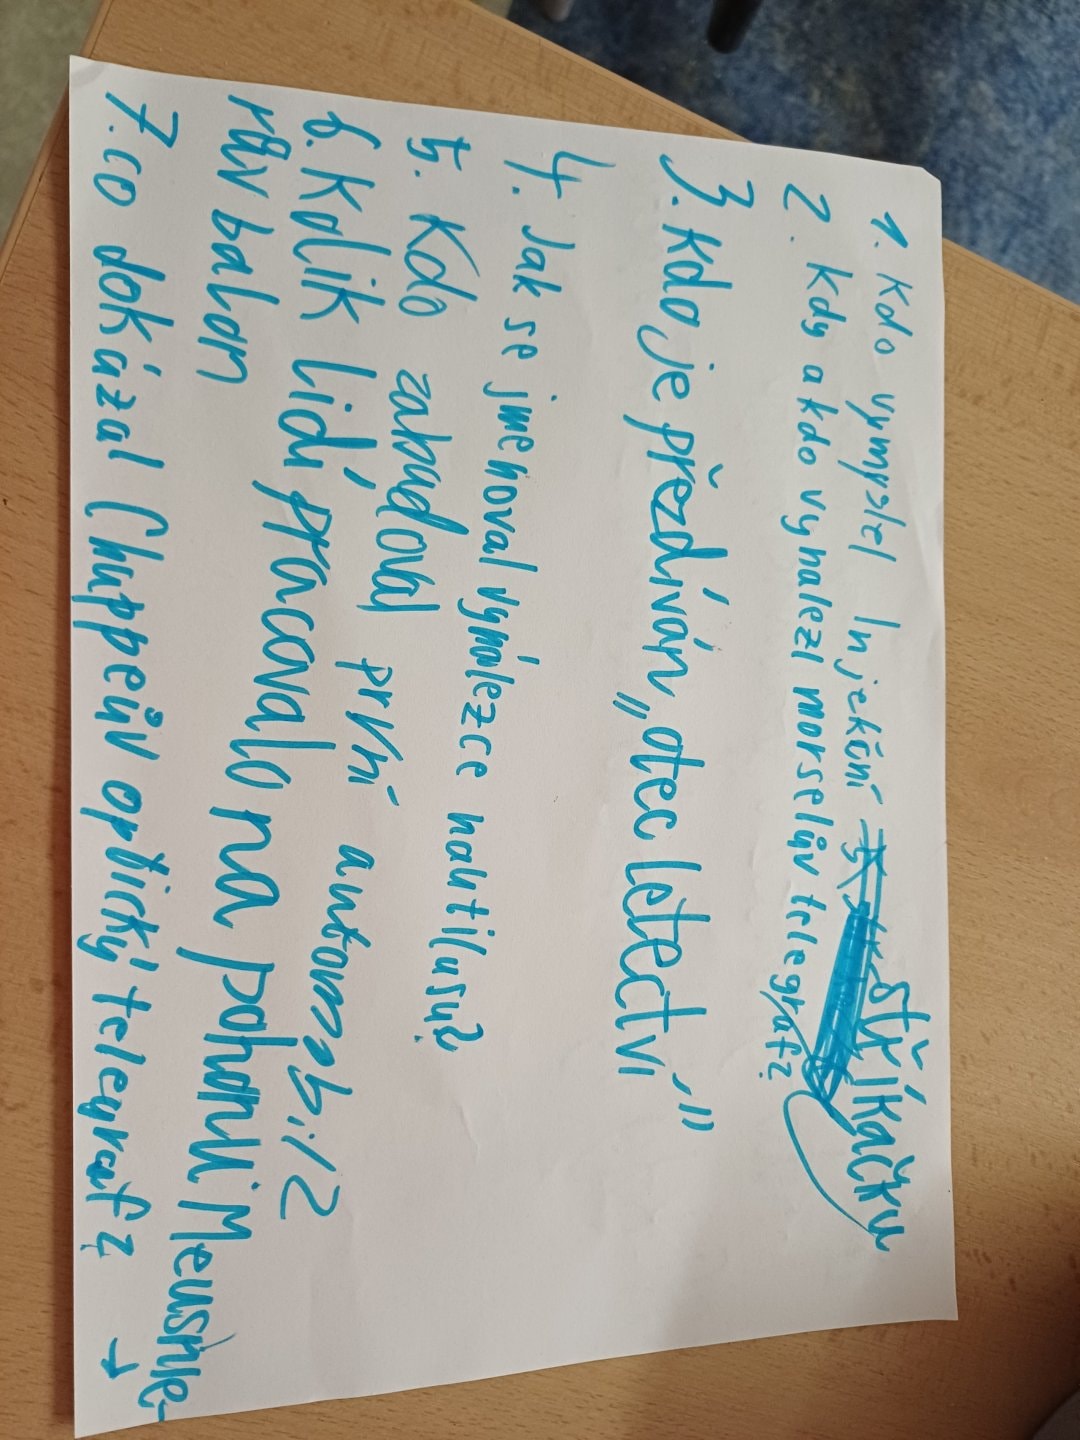 1. Kdo vymyslel Injekční stříkačku
2. kdy a kdo vynalezl morselův telegraf?
3. Kdo je přezdíván „otec letectví"
4. Jak se jmenoval vynálezce nautilusu?
5. Kdo zabudoval první automobil?
6. Kolik lidí pracovalo na pohonu Meusnie-
rův balon
7. co dokázal Chappeův optický telegraf? →